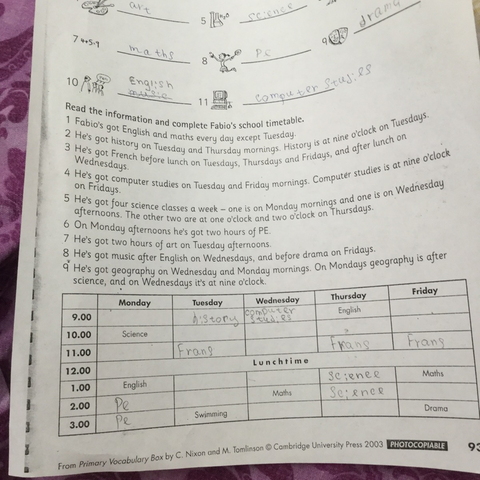 art
5 science
drama
7 4+5=9 maths
8 Pe
9
10 English
music
11 computer studies
Read the information and complete Fabio's school timetable.
1 Fabio's got English and maths every day except Tuesday.
2 He's got history on Tuesday and Thursday mornings. History is at nine o'clock on Tuesdays.
3 He's got French before lunch on Tuesdays, Thursdays and Fridays, and after lunch on
Wednesdays.
4 He's got computer studies on Tuesday and Friday mornings. Computer studies is at nine o'clock
on Fridays.
5 He's got four science classes a week – one is on Monday mornings and one is on Wednesday
afternoons. The other two are at one o'clock and two o'clock on Thursdays.
6 On Monday afternoons he's got two hours of PE.
7 He's got two hours of art on Tuesday afternoons.
8 He's got music after English on Wednesdays, and before drama on Fridays.
9 He's got geography on Wednesday and Monday mornings. On Mondays geography is after
science, and on Wednesdays it's at nine o'clock.
Monday Tuesday Wednesday Thursday Friday
9.00 History computer studies English
10.00 Science
11.00 Frang Frang Frang
12.00 Lunchtime
1.00 English Science Maths
2.00 Pe Maths Science
3.00 Pe Swimming Drama
From Primary Vocabulary Box by C. Nixon and M. Tomlinson © Cambridge University Press 2003 PHOTOCOPIABLE 93